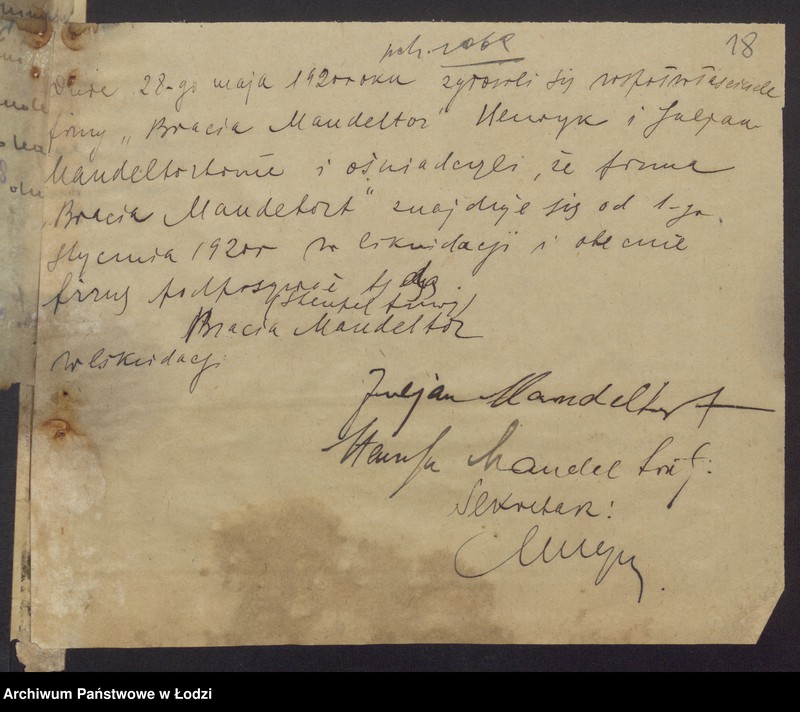 18
Dnia 28-go maja 1920 roku zgłosili się współwłaściciele
firmy „Bracia Mandeltor" Henryk i Juljan
Mandeltortowie i oświadczyli, że firma
„Bracia Mandeltort" znajduje się od 1-go
stycznia 1920 r w likwidacji i obecnie
firmę podpisywać
(Stempel firmy)
Bracia Mandeltor
w likwidacji
Juljan Mandeltort
Henryk Mandeltort
Sekretarz:
Archiwum Państwowe w Łodzi